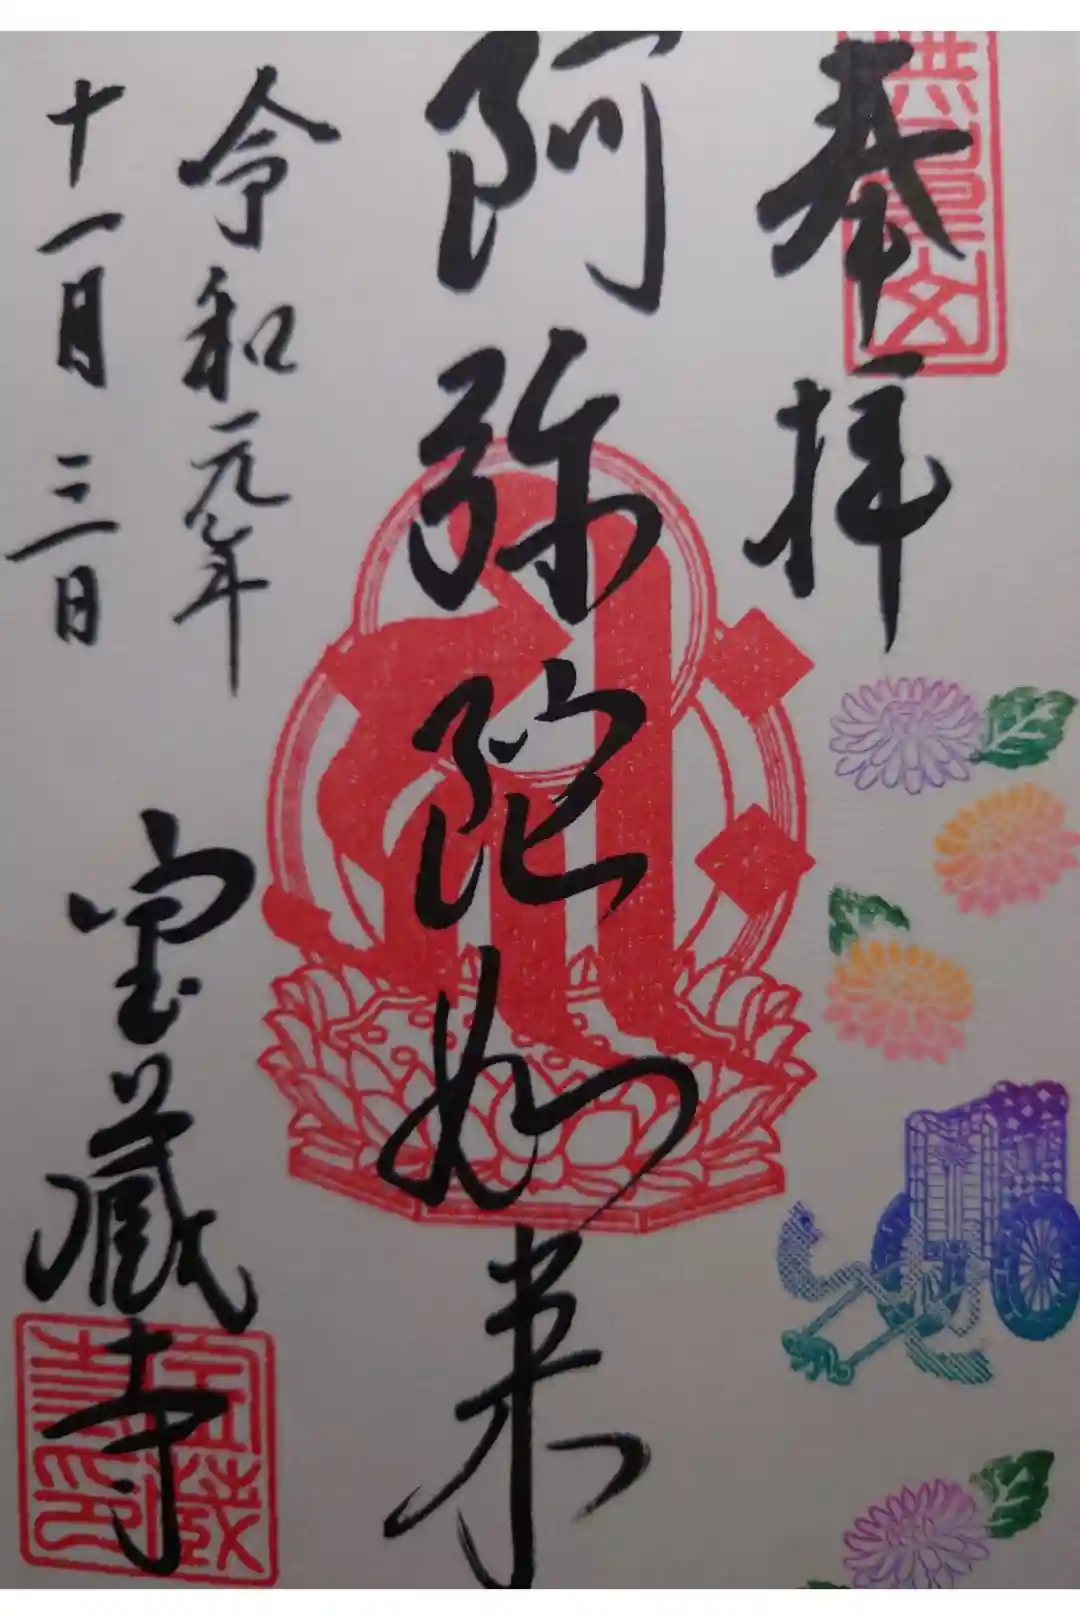 奉拝
阿弥陀如来
令和元年
十一月三日
宝蔵寺